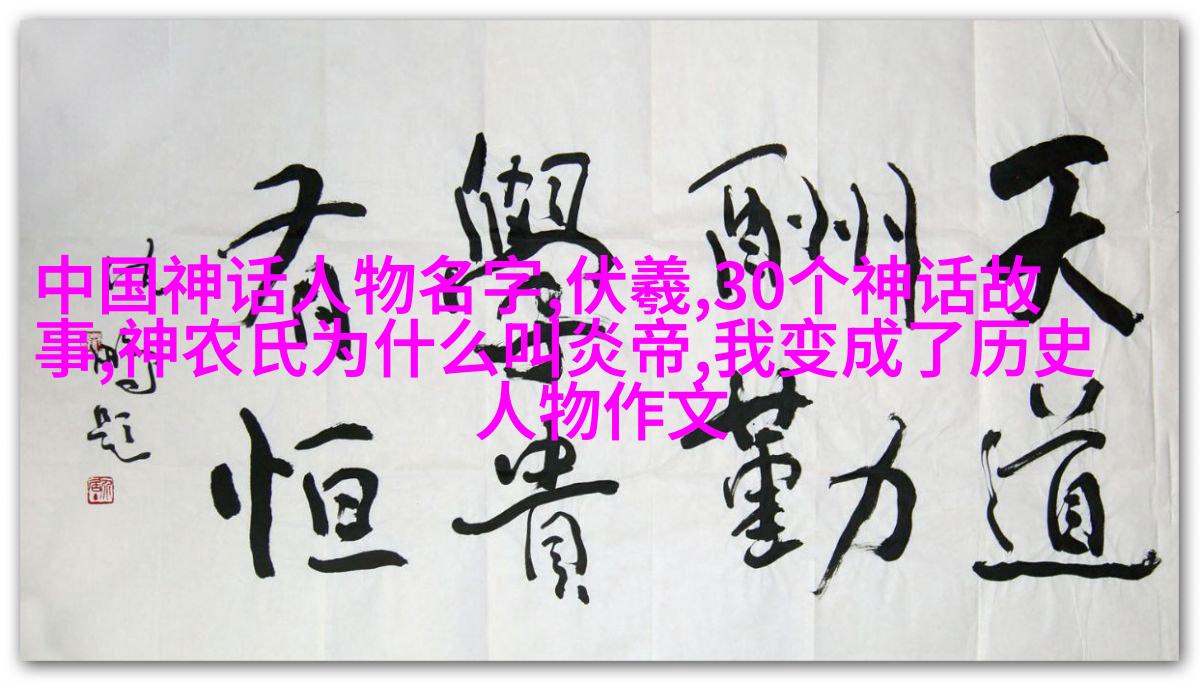 中国神话人物名字,伏羲,30个神话故
事,神农氏为什么叫炎帝,我变成了历史
人物作文
天道
酬勤
學貴
有恒
题